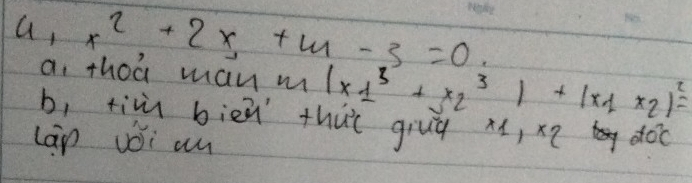 a, x² + 2x + m - 3 = 0.
a, thoả mãn m(x1³ + x2³) + (x1 x2)² =
b, tìm biểu thức giữa x1, x2 độc
lập với m